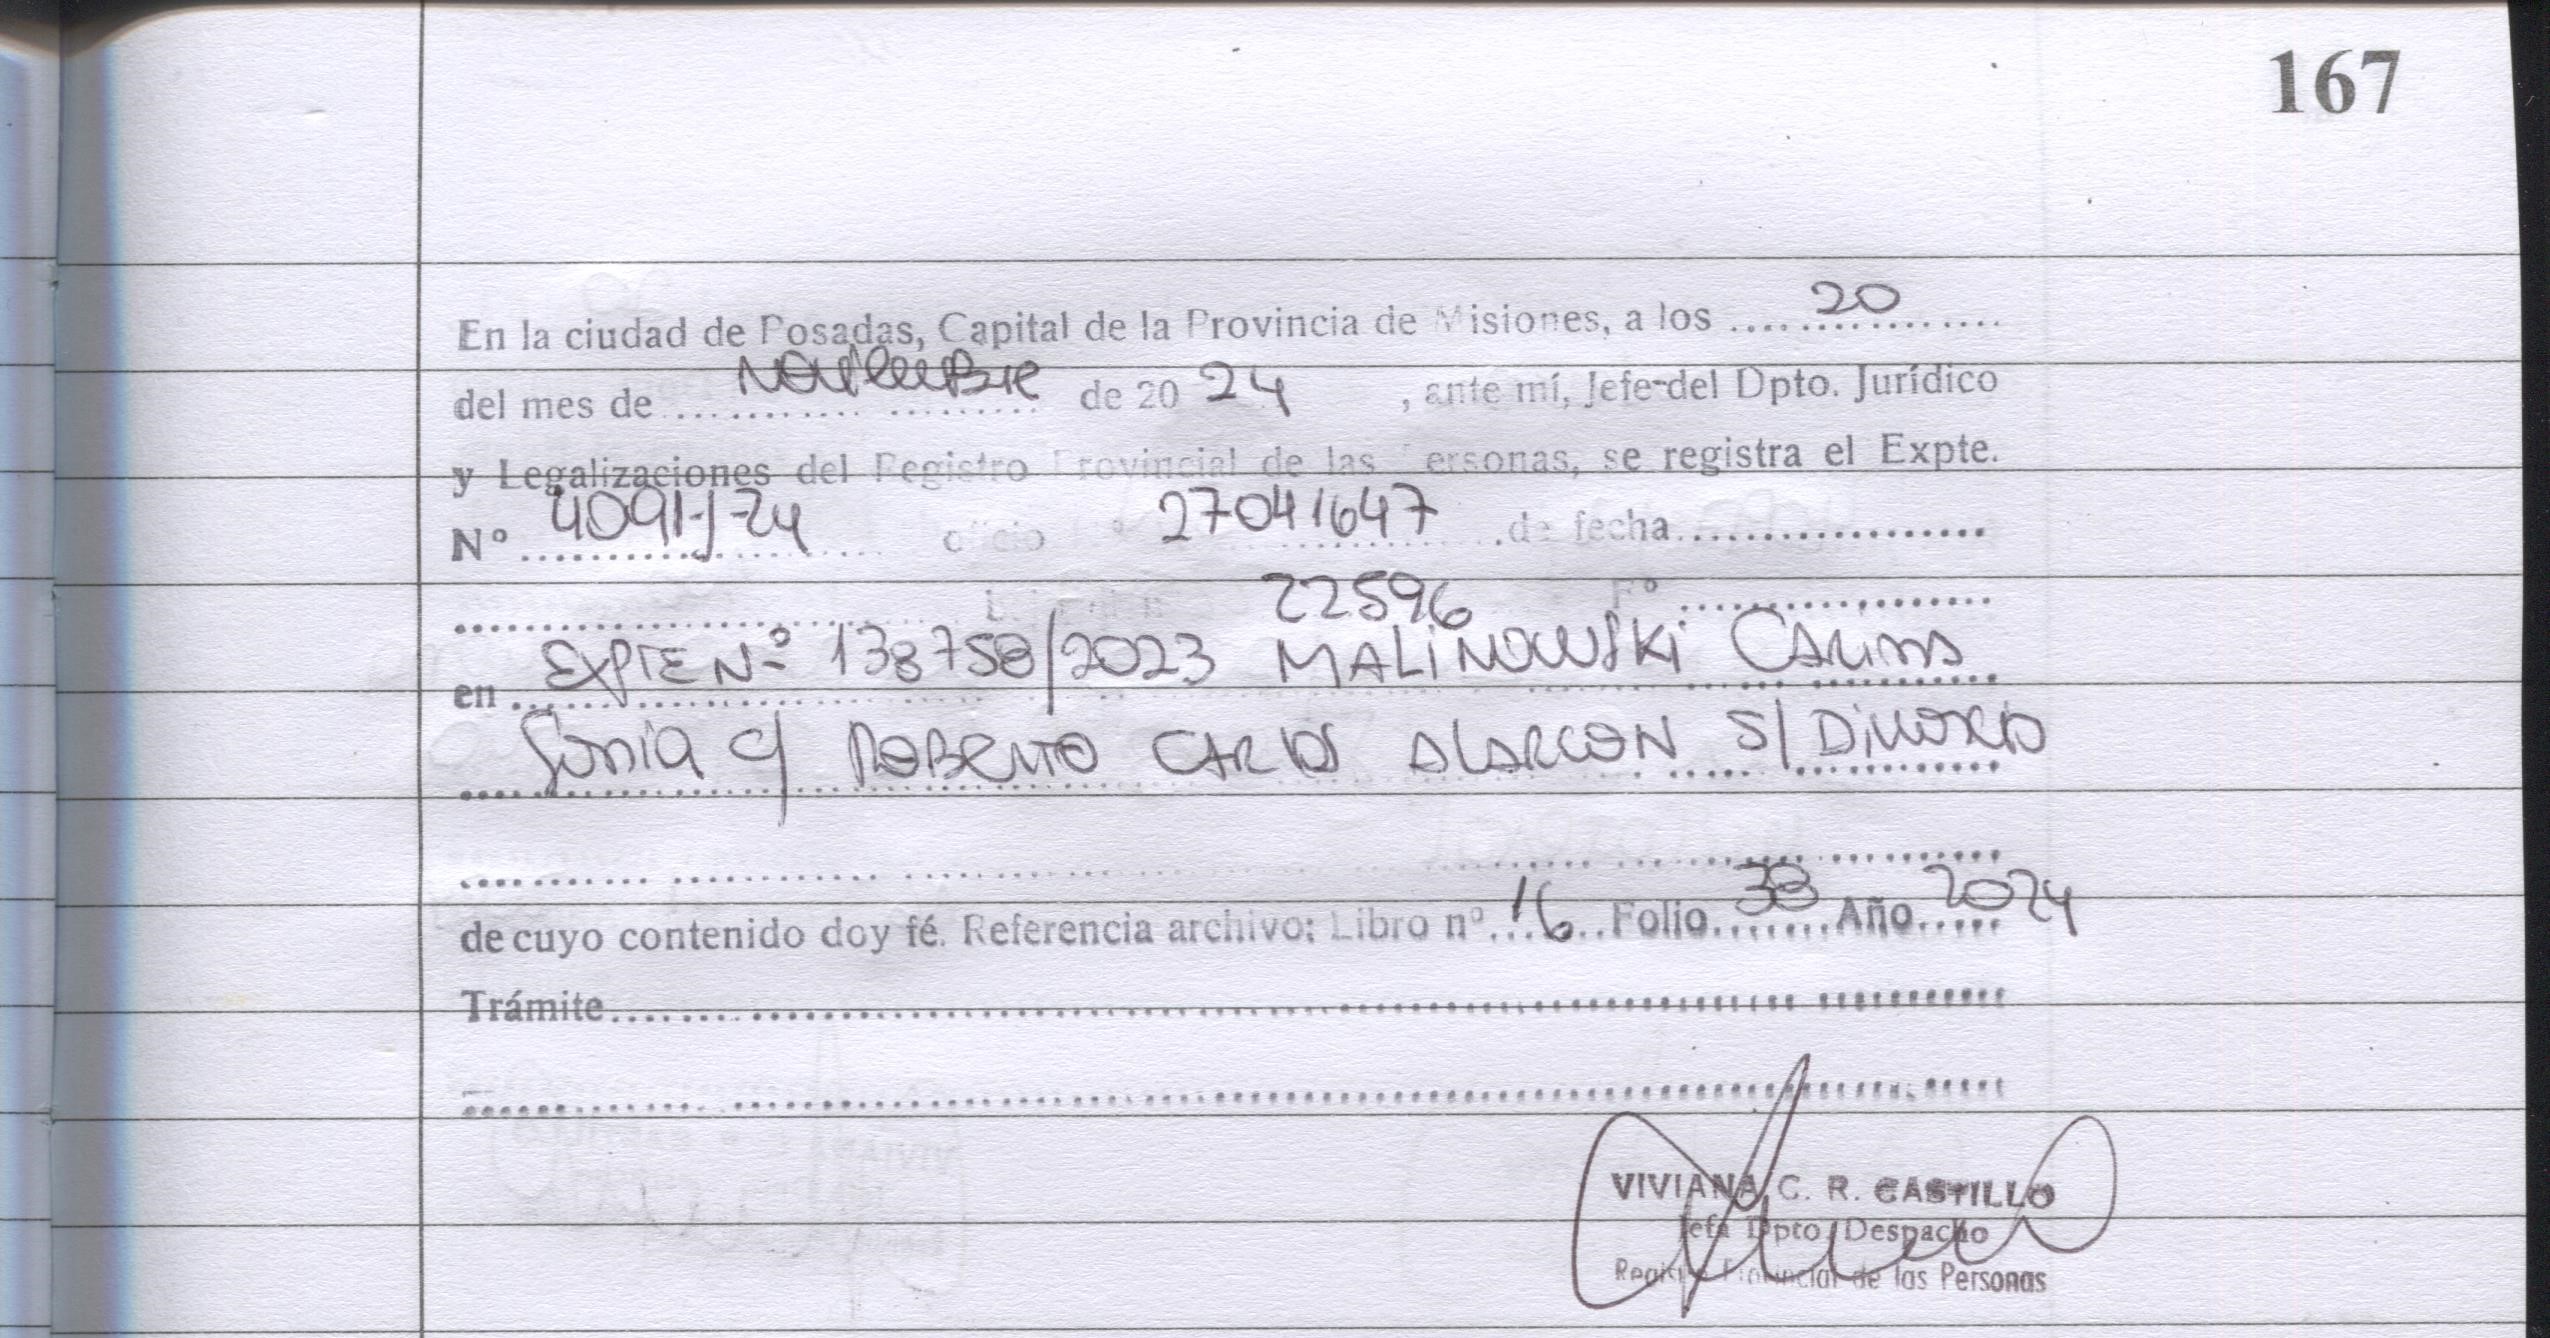 167
En la ciudad de Posadas, Capital de la Provincia de Misiones, a los .... 20 ....
del mes de .... Noviembre .... de 20 24 , ante mí, Jefe del Dpto. Jurídico
y Legalizaciones del Registro Provincial de las Personas, se registra el Expte.
Nº 4091-J-24 oficio Nº 27041647 de fecha ....
22596 Fº ....
en EXPTE Nº 138758/2023 MALINOWSKI CARINA
Sonia c/ ROBERTO CARLOS ALARCON S/ DIVORCIO
de cuyo contenido doy fé. Referencia archivo: Libro nº 16 Folio 38 Año 2024
Trámite ....
VIVIANA C. R. CASTILLO
Jefa Dpto. Despacho
Registro Provincial de las Personas